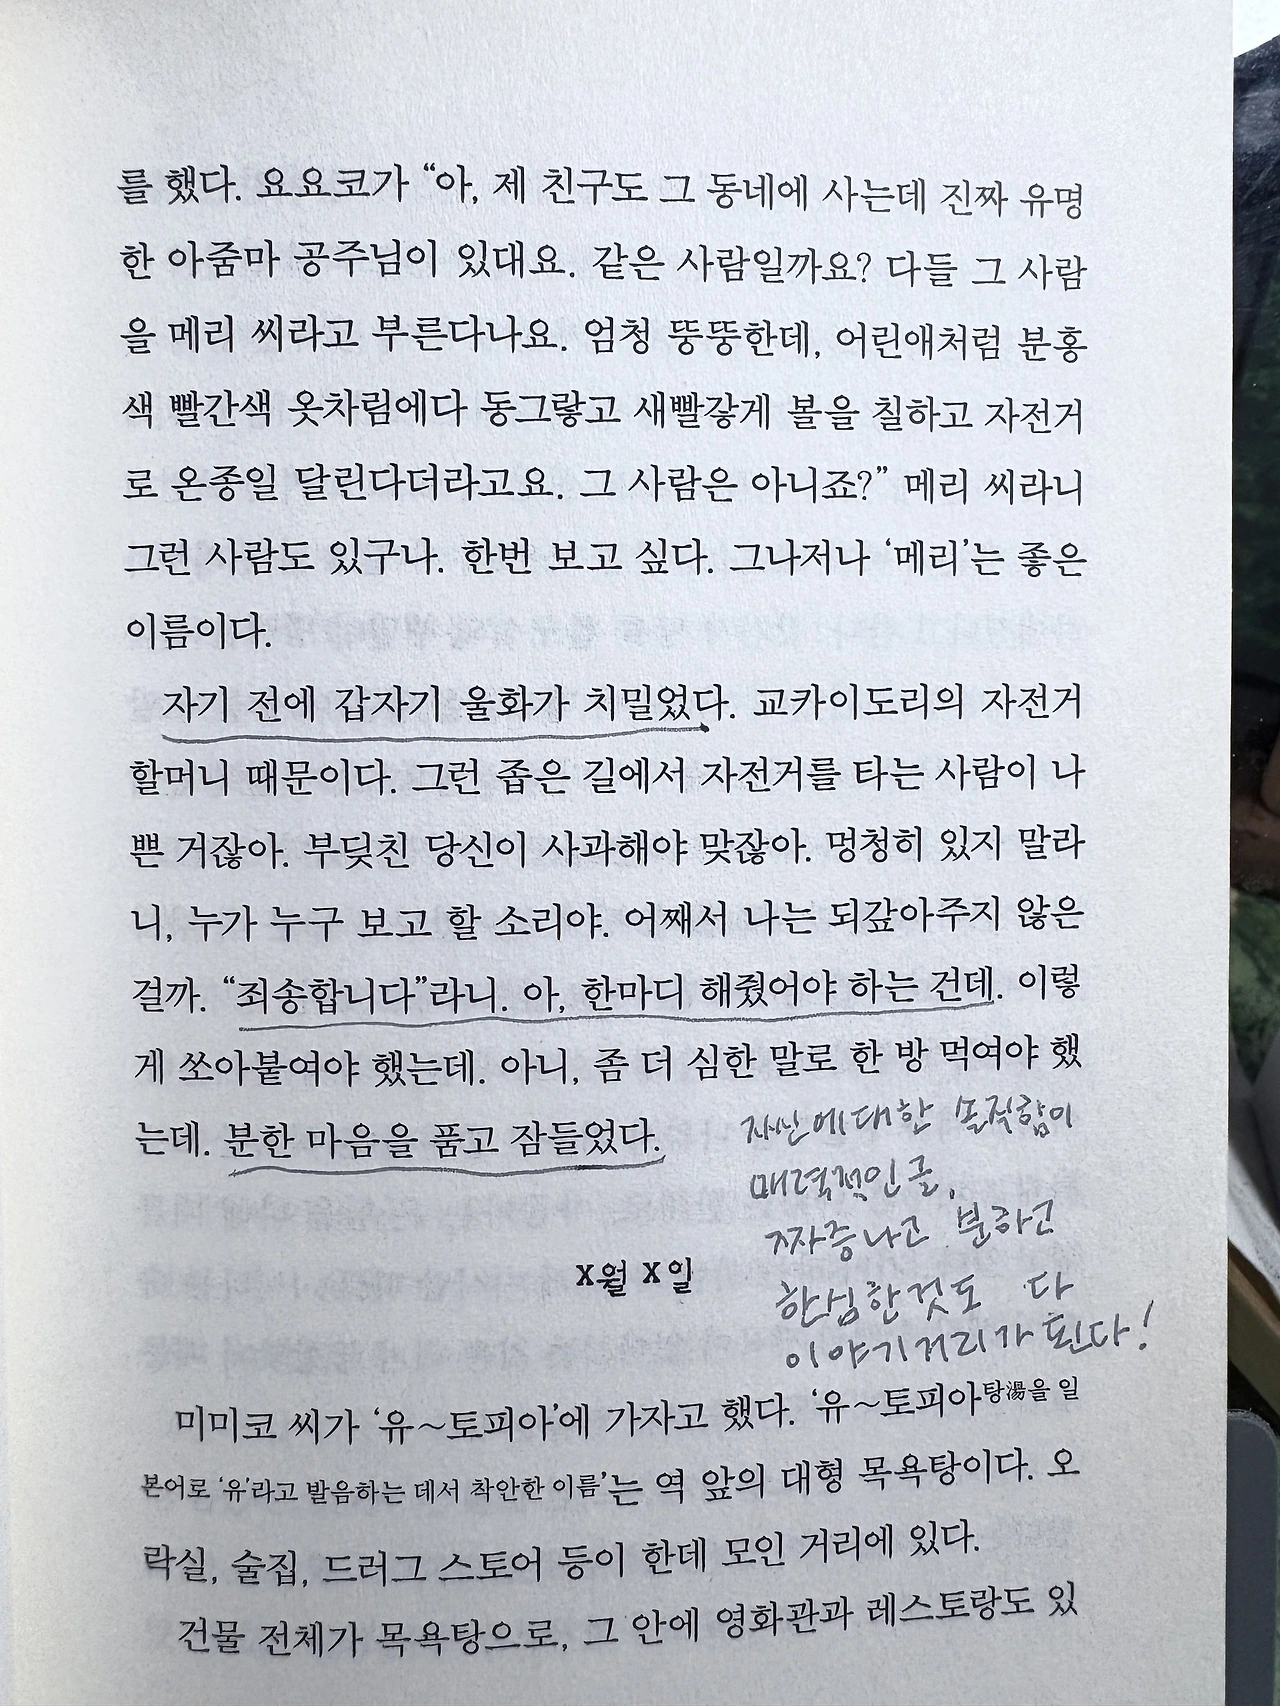 를 했다. 요요코가 “아, 제 친구도 그 동네에 사는데 진짜 유명
한 아줌마 공주님이 있대요. 같은 사람일까요? 다들 그 사람
을 메리 씨라고 부른다나요. 엄청 뚱뚱한데, 어린애처럼 분홍
색 빨간색 옷차림에다 동그랗고 새빨갛게 볼을 칠하고 자전거
로 온종일 달린다더라고요. 그 사람은 아니죠?” 메리 씨라니
그런 사람도 있구나. 한번 보고 싶다. 그나저나 ‘메리’는 좋은
이름이다.
자기 전에 갑자기 울화가 치밀었다. 교카이도리의 자전거
할머니 때문이다. 그런 좁은 길에서 자전거를 타는 사람이 나
쁜 거잖아. 부딪친 당신이 사과해야 맞잖아. 멍청히 있지 말라
니, 누가 누구 보고 할 소리야. 어째서 나는 되갚아주지 않은
걸까. “죄송합니다”라니. 아, 한마디 해줬어야 하는 건데. 이렇
게 쏘아붙여야 했는데. 아니, 좀 더 심한 말로 한 방 먹여야 했
는데. 분한 마음을 품고 잠들었다.
자신에대한 솔직함이
매력적인 글,
짜증나고 분하고
한심한것도 다
이야기거리가 된다!
X월 X일
미미코 씨가 ‘유～토피아’에 가자고 했다. ‘유～토피아탕湯을 일
본어로 ‘유’라고 발음하는 데서 착안한 이름’는 역 앞의 대형 목욕탕이다. 오
락실, 술집, 드러그 스토어 등이 한데 모인 거리에 있다.
건물 전체가 목욕탕으로, 그 안에 영화관과 레스토랑도 있